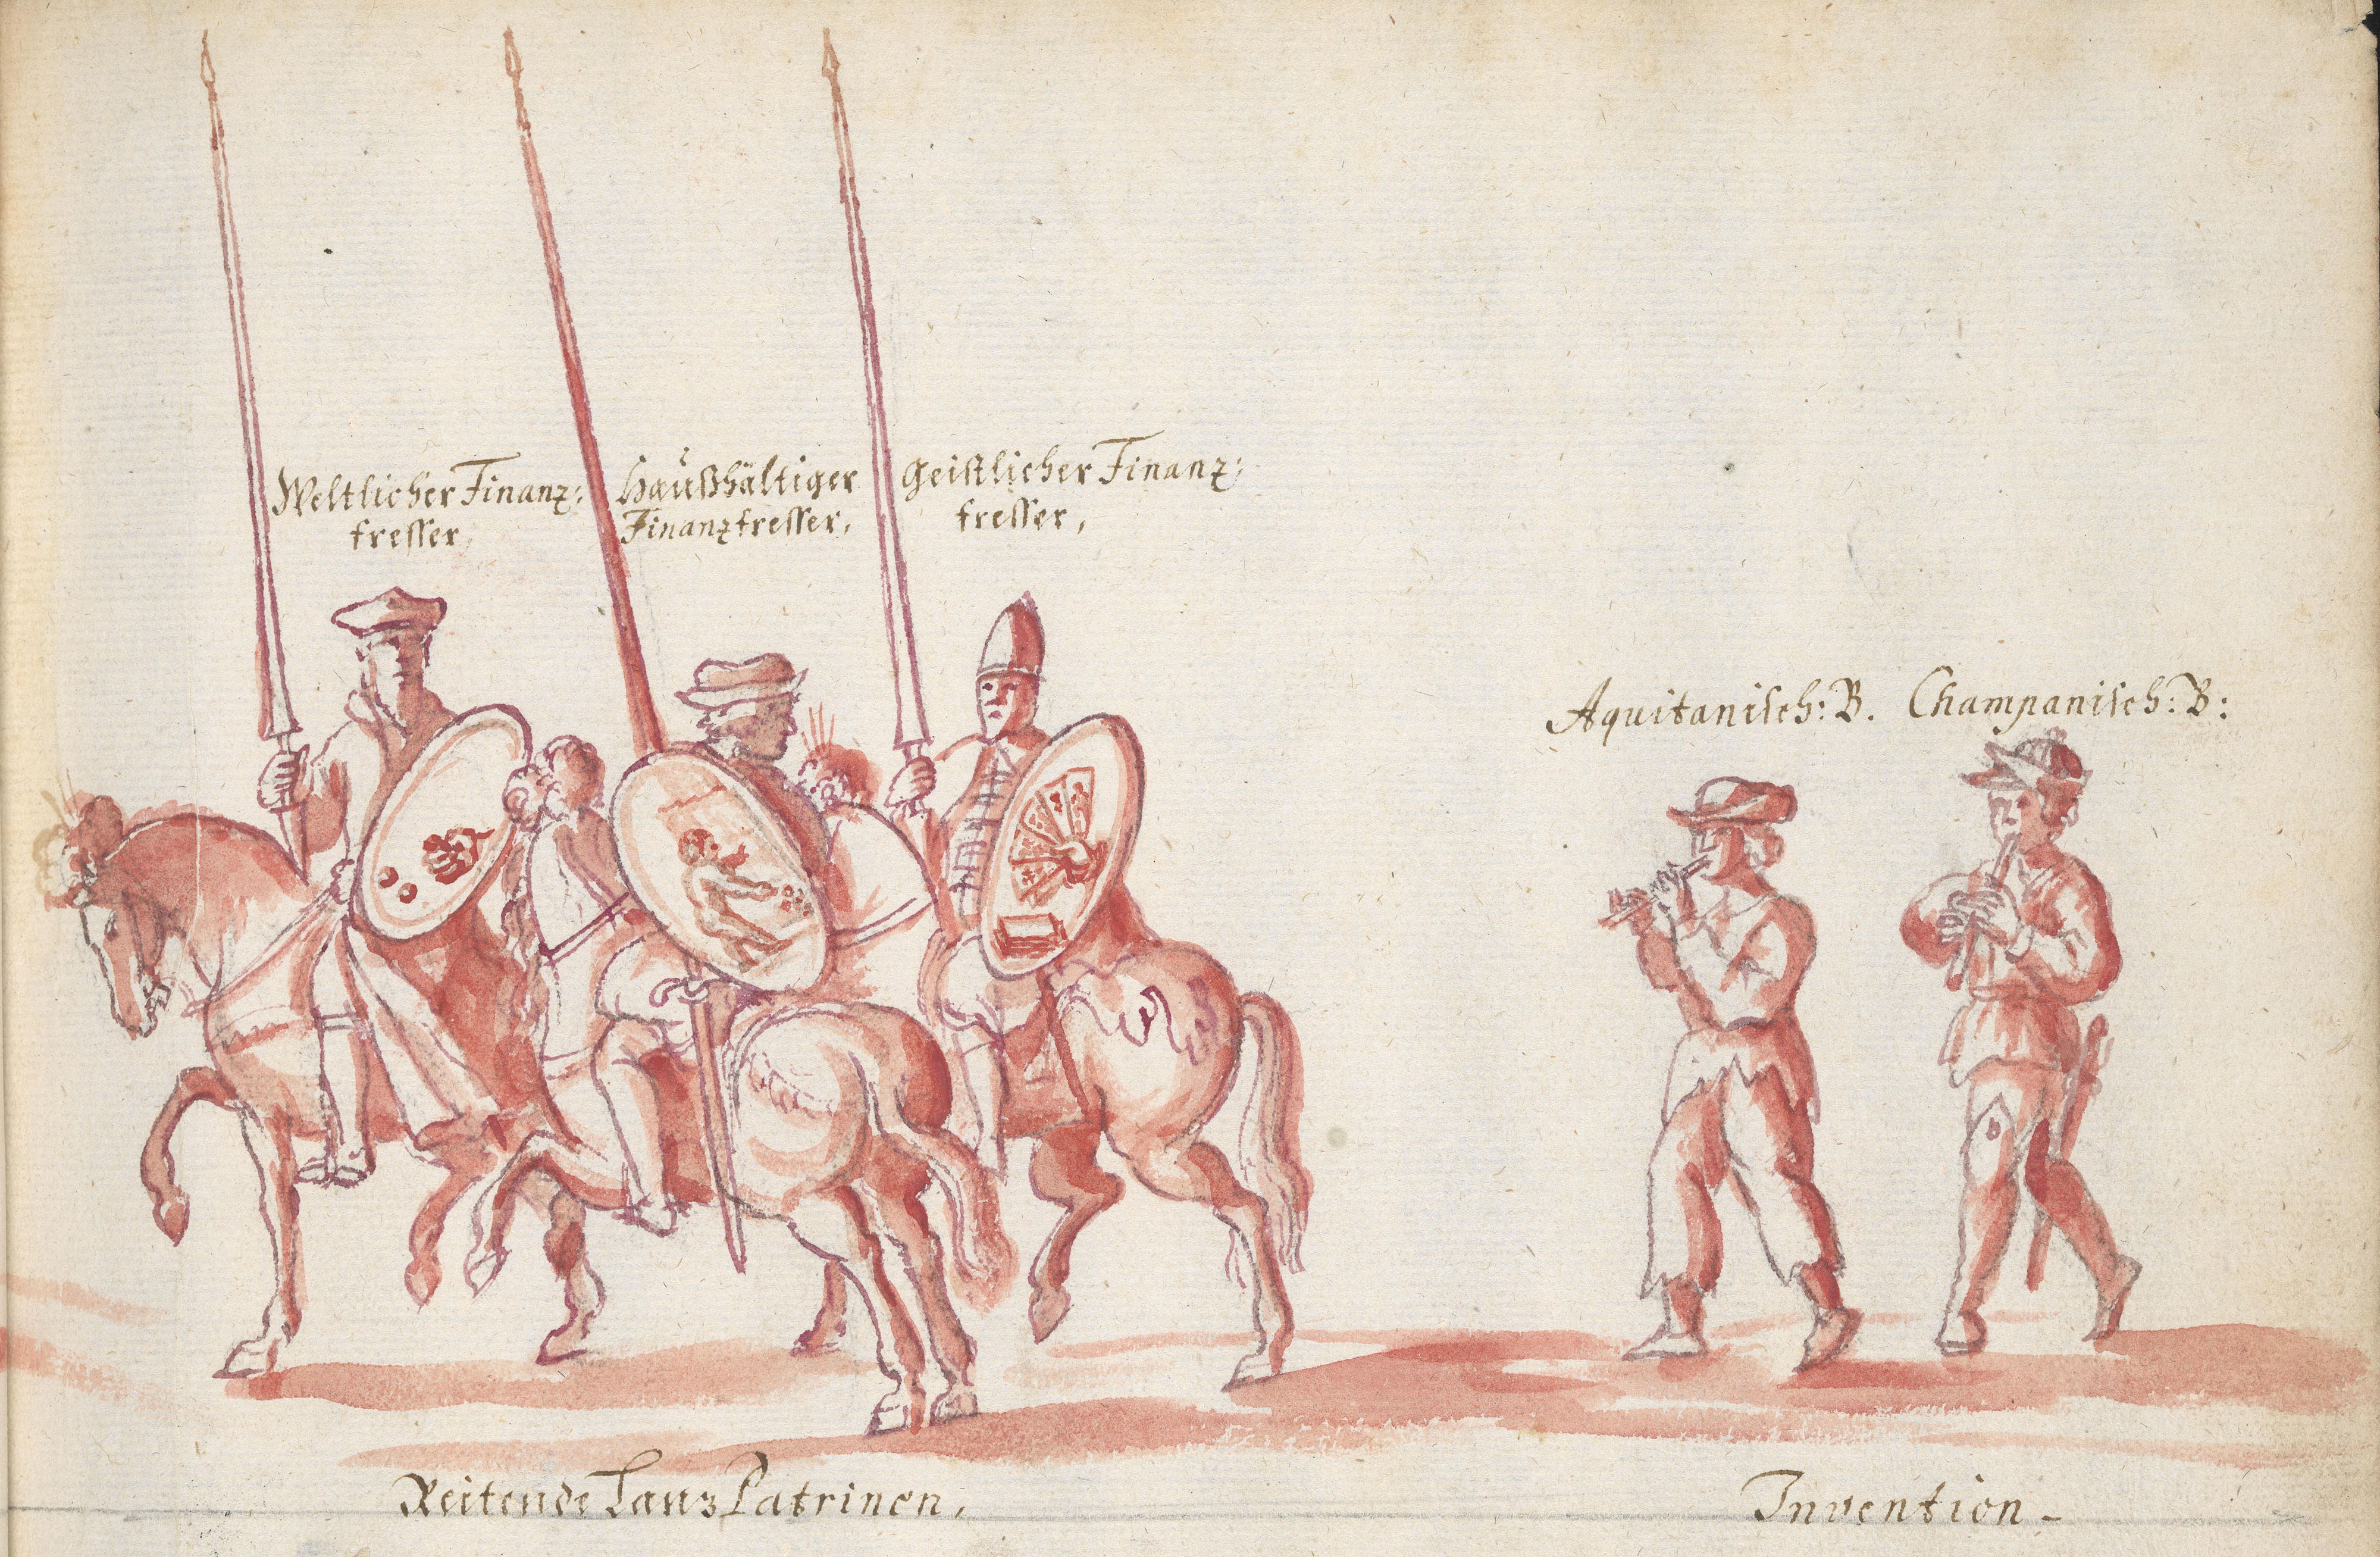 Weltlicher Finanz:
fresser,
Haußhältiger
Finanzfresser,
Geistlicher Finanz:
fresser,
Aquitanisch: B.
Champanisch: B:
Reitende Lanz Patrinen,
Invention -